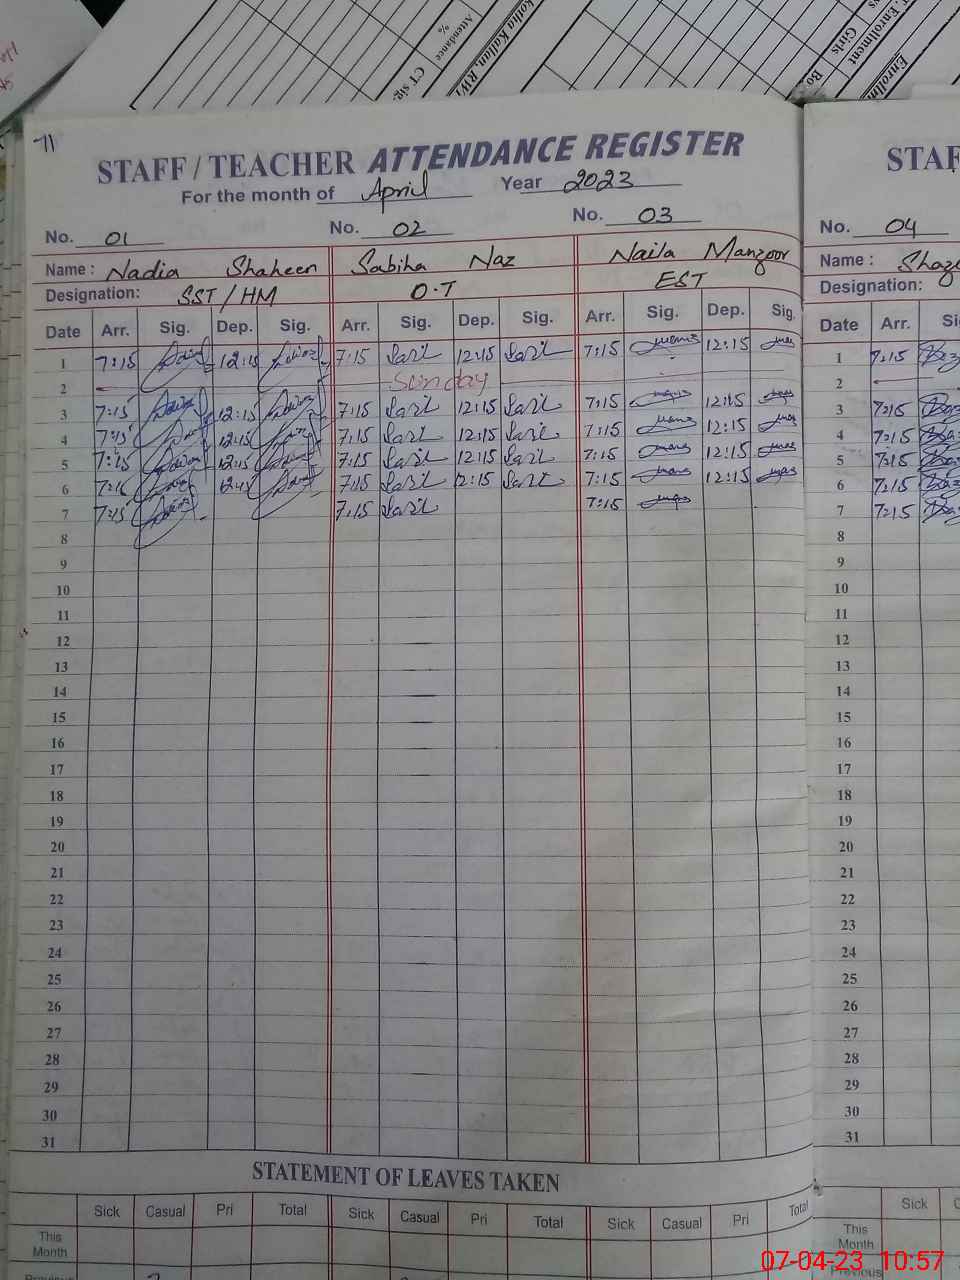 71
STAFF / TEACHER ATTENDANCE REGISTER
For the month of April Year 2023
No. 01 No. 02 No. 03
Name : Nadia Shaheen Sabiha Naz Naila Manzoor
Designation: SST / HM O.T EST
Date Arr. Sig. Dep. Sig. Arr. Sig. Dep. Sig. Arr. Sig. Dep. Sig.
1 7:15 12:15 7:15 12:15 7:15 12:15
2 Sunday
3 7:15 12:15 7:15 12:15 7:15 12:15
4 7:15 12:15 7:15 12:15 7:15 12:15
5 7:15 12:15 7:15 12:15 7:15 12:15
6 7:15 12:15 7:15 12:15 7:15 12:15
7 7:15 7:15 7:15
8
9
10
11
12
13
14
15
16
17
18
19
20
21
22
23
24
25
26
27
28
29
30
31
STATEMENT OF LEAVES TAKEN
Sick Casual Pri Total Sick Casual Pri Total Sick Casual Pri Total
This Month
No. 04
Name :
Designation:
Date Arr.
1 7:15
2
3 7:15
4 7:15
5 7:15
6 7:15
7 7:15
8
9
10
11
12
13
14
15
16
17
18
19
20
21
22
23
24
25
26
27
28
29
30
31
Sick
This Month
Attendance %
CT sig.
Kotha Kallan, RW
Enrollment
Girls
07-04-23 10:57